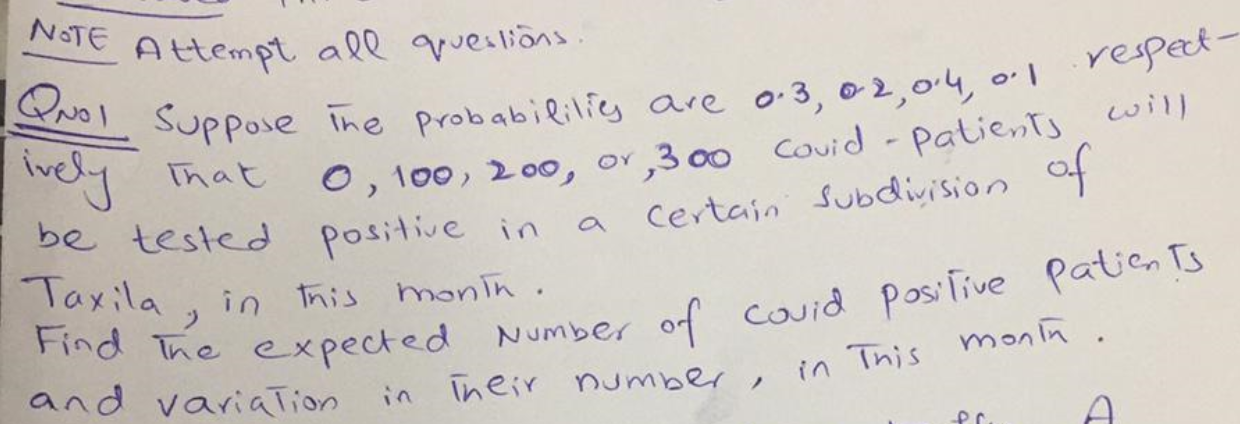 NOTE Attempt all questions.
QNO1 Suppose The probabilities are 0.3, 0.2, 0.4, 0.1 respect-
ively That 0, 100, 200, or, 300 Covid-patients will
be tested positive in a certain subdivision of
Taxila, in This month.
Find The expected Number of covid positive patients
and variation in Their number, in This month.
A